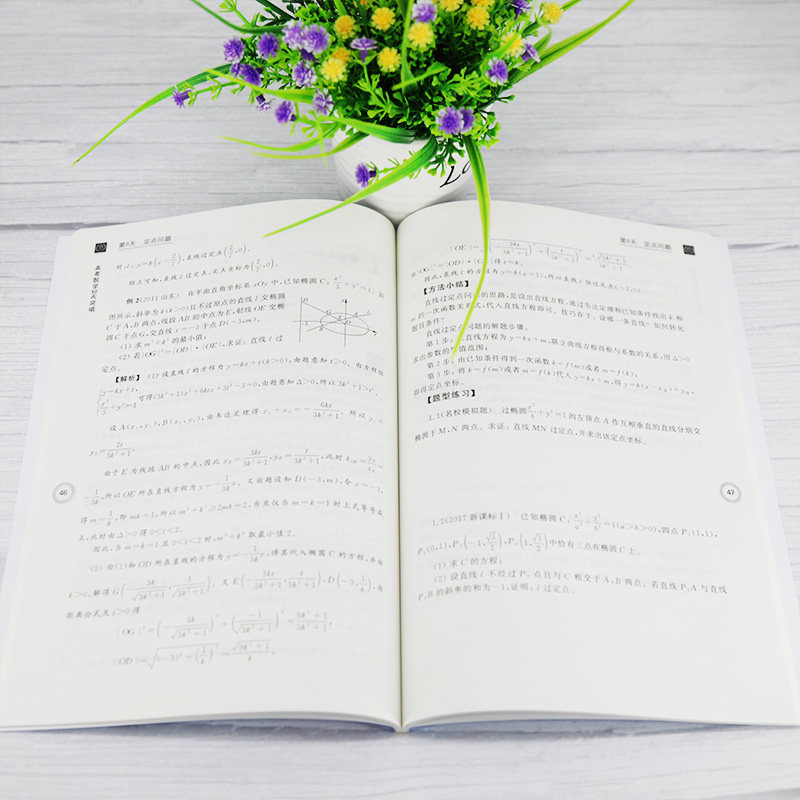 第8天 定点问题
高考数学90天突破
所以,y=k(x-2/7),直线过定点(2/7,0),
综上可知,直线l过定点,定点坐标为(2/7,0).
例2(2011山东) 在平面直角坐标系xOy中,已知椭圆C:x²/3+y²=1,如
图所示,斜率为k(k>0)且不过原点的直线l交椭圆
C于A,B两点,线段AB的中点为E,射线OE交椭
圆C于点G,交直线x=-3于点D(-3,m).
(1)求m²+k²的最小值;
(2)若|OG|²=|OD|·|OE|,求证:直线l过
定点.
【解析】 (1)设直线l的方程为y=kx+t(k>0),由题意知t>0,由方程组
{y=kx+t, x²/3+y²=1 可得(3k²+1)x²+6ktx+3t²-3=0,由题意知Δ>0,所以3k²+1>t².
设A(x₁,y₁),B(x₂,y₂),由韦达定理得x₁+x₂=-6kt/(3k²+1),所以y₁+
y₂=2t/(3k²+1).
由于E为线段AB的中点,因此x_E=-3kt/(3k²+1),y_E=t/(3k²+1),此时k_OE=y_E/x_E=
-1/(3k),所以OE所在直线方程为y=-1/(3k)x,又由题设知D(-3,m),令x=-3,
得m=1/k,即mk=1,所以m²+k²≥2mk=2,当且仅当m=k=1时上式等号成
立,此时由Δ>0得0<t<2,
因此,当m=k=1且0<t<2时,m²+k²取最小值2.
(2)由(1)知OD所在直线的方程为y=-1/(3k)x,将其代入椭圆C的方程,并由
k>0,解得G(-3k/√(3k²+1),1/√(3k²+1)),又E(-3kt/(3k²+1),t/(3k²+1)),D(-3,1/k),由
距离公式及t>0得
|OG|²=(-3k/√(3k²+1))²+(1/√(3k²+1))²=(9k²+1)/(3k²+1),
|OD|=√((-3)²+(1/k)²)=√(9k²+1)/k,
46
第8天 定点问题
|OE|=√((-3kt/(3k²+1))²+(t/(3k²+1))²)=t√(9k²+1)/(3k²+1),
由|OG|²=|OD|·|OE|得t=k,
因此,直线l的方程为y=k(x+1),所以直线l恒过定点(-1,0)
【方法小结】
直线过定点问题的思路,是设出直线方程,通过韦达定理和已知条件找出k和
m的一次函数关系式,代入直线方程即可.技巧在于:设哪一条直线?如何转化
题目条件?
直线过定点问题的解题步骤:
第1步:设直线方程为y=kx+m,联立曲线方程得根与系数的关系,用Δ>0
求出参数的取值范围;
第2步:由已知条件得到一次函数k=f(m)或者m=f(k);
第3步:将k=f(m)或者m=f(k)代入y=kx+m,得y=k(x-x_K)+y_K,
即得定点坐标.
【题型练习】
1.1(名校模拟题) 过椭圆x²/4+y²=1的左顶点A作互相垂直的直线分别交
椭圆于M,N两点.求证:直线MN过定点,并求出该定点坐标.
1.2(2017新课标Ⅰ) 已知椭圆C:x²/a²+y²/b²=1(a>b>0),四点P₁(1,1),
P₂(0,1),P₃(-1,√3/2),P₄(1,√3/2)中恰有三点在椭圆C上,
(1)求C的方程;
(2)设直线l不经过P₂点且与C相交于A,B两点.若直线P₂A与直线
P₂B的斜率的和为-1,证明:l过定点.
47